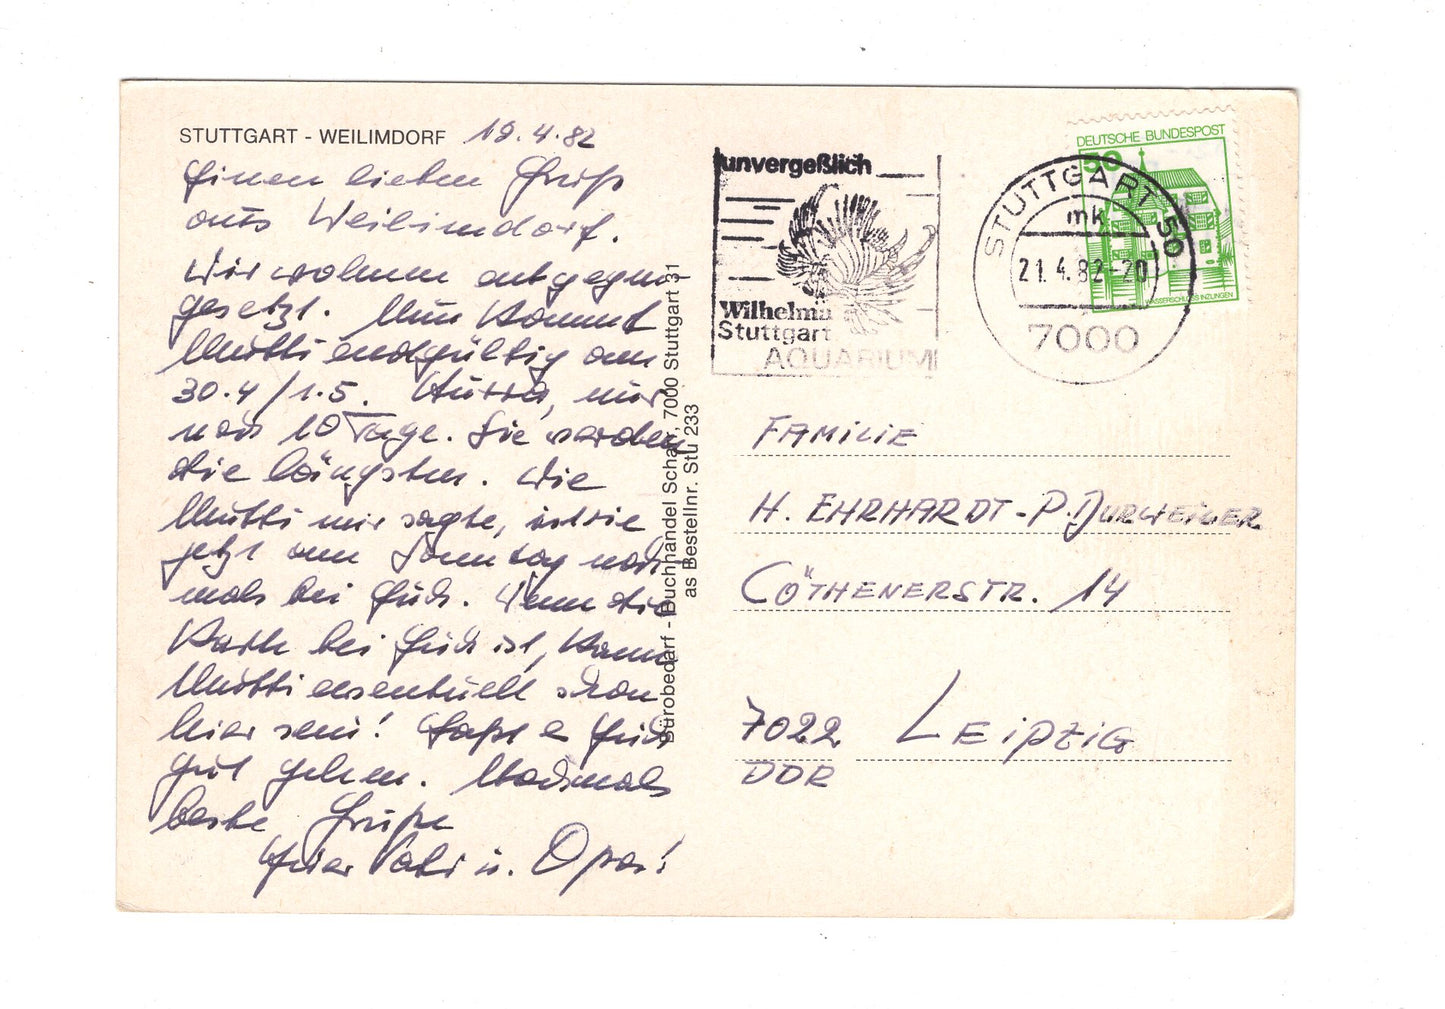 STUTTGART - WEILIMDORF 19.4.82
Einen lieben Gruß
aus Weilimdorf.
Wir wohnen entgegen-
gesetzt. Nun kommt
Mutti endgültig am
30.4/1.5. Hurra, nur
noch 10 Tage. Sie werden
die längsten. Wie
Mutti mir sagte, ist sie
jetzt am Sonntag noch
mals bei Euch. Wenn die
Karte bei Euch ist, kann
Mutti eventuell schon
hier sein! Laßt es Euch
gut gehen. Nochmals
beste Grüße
Euer Vati u. Opa!
Bürobedarf - Buchhandel Schaar, 7000 Stuttgart 31
as Bestellnr. Stu 233
unvergeßlich
Wilhelma
Stuttgart
AQUARIUM
STUTTGART 50
mk
21.4.82-20
7000
DEUTSCHE BUNDESPOST
50
WASSERSCHLOSS INZLINGEN
FAMILIE
H. EHRHARDT - P.
CÖTHENERSTR. 14
7022 LEIPZIG
DDR